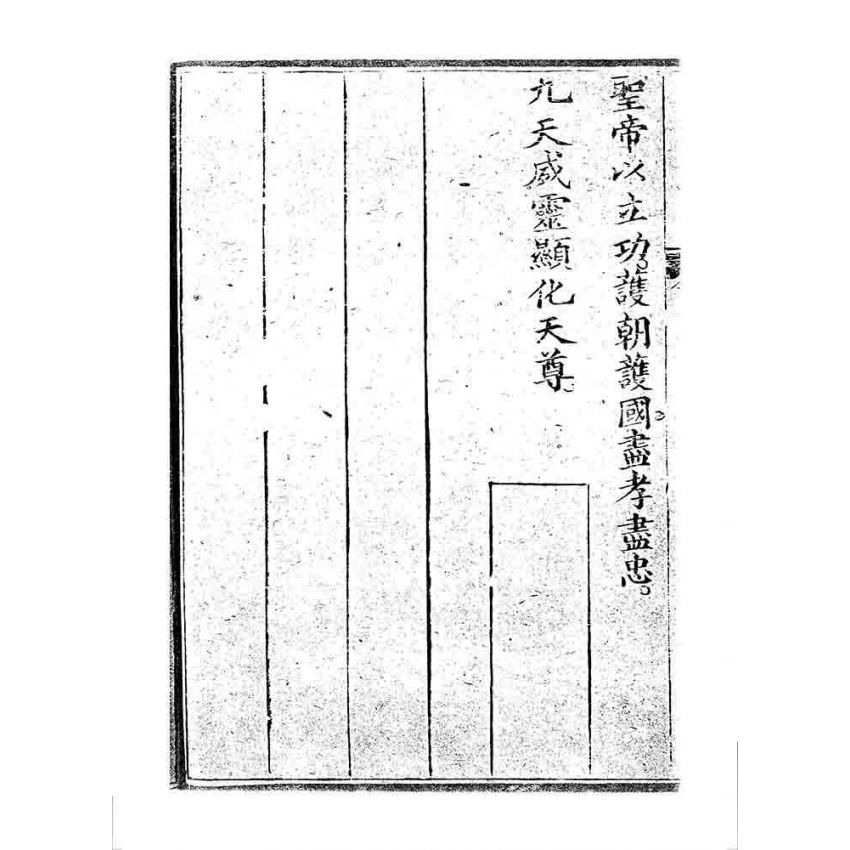 聖帝以立功。護朝護國。盡孝盡忠。
九天威靈顯化天尊。